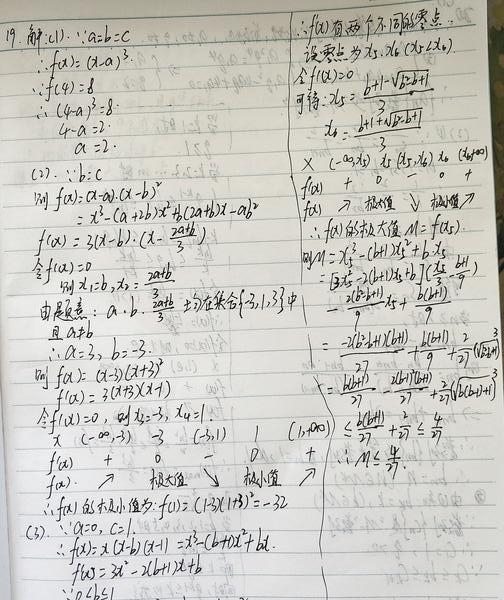 19. 解:(1). ∵a=b=c
∴f(x)=(x-a)³
∴f(4)=8
∴(4-a)³=8
4-a=2
a=2.
(2). ∵b=c
则 f(x)=(x-a)·(x-b)²
=x³-(a+2b)x²+b(2a+b)x-ab²
f'(x)=3(x-b)·(x-\frac{2a+b}{3})
令f'(x)=0
则 x₁=b, x₂=\frac{2a+b}{3}
由题意: a·b·\frac{2a+b}{3} 均在集合{-3,1,3}中
且 a≠b
∴a=3, b=-3.
则 f(x)=(x-3)(x+3)²
f'(x)=3(x+3)(x-1)
令f'(x)=0, 则x₃=-3, x₄=1
x (-∞,-3) -3 (-3,1) 1 (1,+∞)
f'(x) + 0 - 0 +
f(x) ↗ 极大值 ↘ 极小值 ↗
∴f(x)的极小值为:f(1)=(1-3)(1+3)²=-32
(3). ∵a=0, c=1.
∴f(x)=x(x-b)(x-1)=x³-(b+1)x²+bx.
f'(x)=3x²-2(b+1)x+b
∵0<b≤1
∴f'(x)有两个不同的零点.
设零点为x₅,x₆(x₅<x₆)
令f'(x)=0
可得:x₅=\frac{b+1-\sqrt{b²-b+1}}{3}
x₆=\frac{b+1+\sqrt{b²-b+1}}{3}
x (-∞,x₅) x₅ (x₅,x₆) x₆ (x₆,+∞)
f'(x) + 0 - 0 +
f(x) ↗ 极大值 ↘ 极小值 ↗
∴f(x)的极大值M=f(x₅).
则M=x₅³-(b+1)x₅²+bx₅
=[3x₅²-2(b+1)x₅+b](\frac{x₅}{3}-\frac{b+1}{9})
-\frac{2(b²-b+1)}{9}x₅+\frac{b(b+1)}{9}
=\frac{-2(b²-b+1)(b+1)}{27}+\frac{b(b+1)}{9}+\frac{2}{27}(\sqrt{b²-b+1})³
=\frac{b(b+1)}{27}-\frac{2(b-1)²(b+1)}{27}+\frac{2}{27}(\sqrt{b(b-1)+1})³
≤\frac{b(b+1)}{27}+\frac{2}{27}≤\frac{4}{27}
∴M≤\frac{4}{27}.